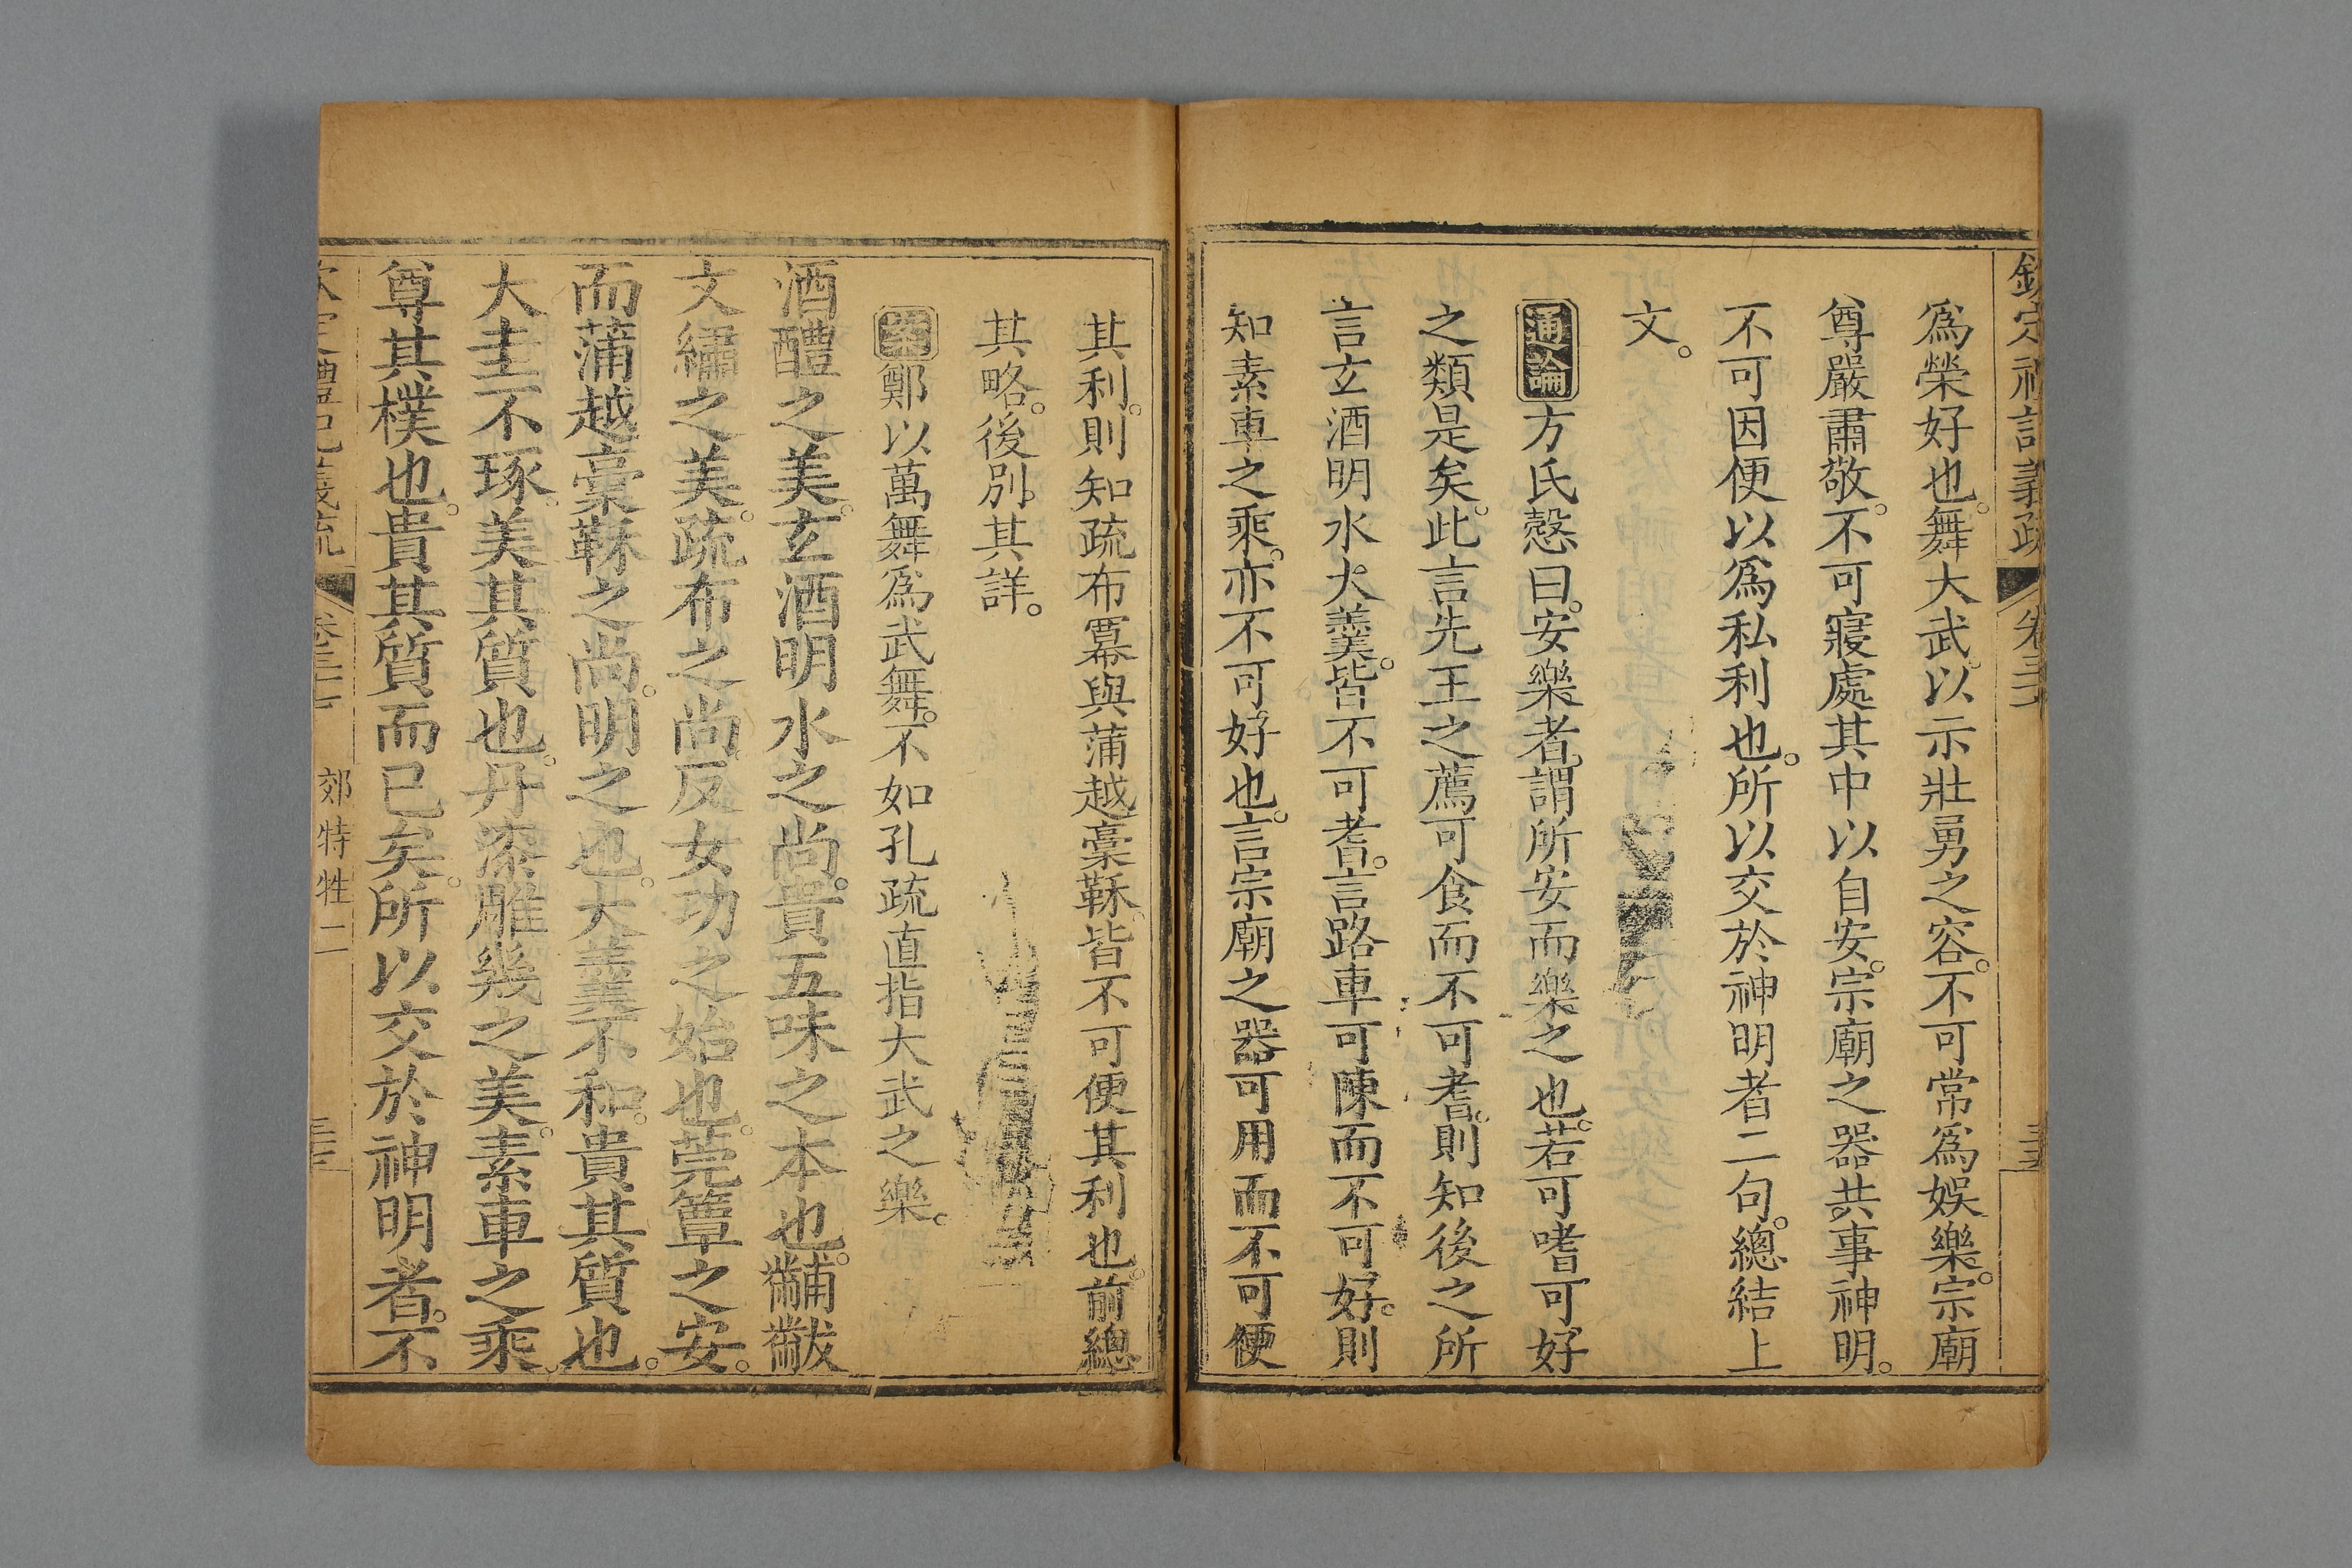 欽定禮記義疏 卷三十七
爲榮好也。舞大武。以示壯勇之容。不可常爲娛樂。宗廟
尊嚴肅敬。不可寢處其中以自安。宗廟之器共事神明。
不可因便以爲私利也。所以交於神明者二句。總結上
文。
通論方氏慤曰。安樂者。謂所安而樂之也。若可嗜可好
之類是矣。此言先王之薦可食而不可耆。則知後之所
言玄酒明水大羹。皆不可耆。言路車可陳而不可好。則
知素車之乘。亦不可好也。言宗廟之器可用而不可便
其利。則知疏布冪與蒲越藁鞂。皆不可便其利也。前總
其略。後別其詳。
鄭以萬舞爲武舞。不如孔疏直指大武之樂。
酒醴之美。玄酒明水之尚。貴五味之本也。黼黻
文繡之美。疏布之尚。反女功之始也。莞簟之安。
而蒲越藁鞂之尚。明之也。大羹不和。貴其質也。
大圭不琢。美其質也。丹漆雕幾之美。素車之乘。
尊其樸也。貴其質而已矣。所以交於神明者。不
欽定禮記義疏 卷三十七 郊特牲二